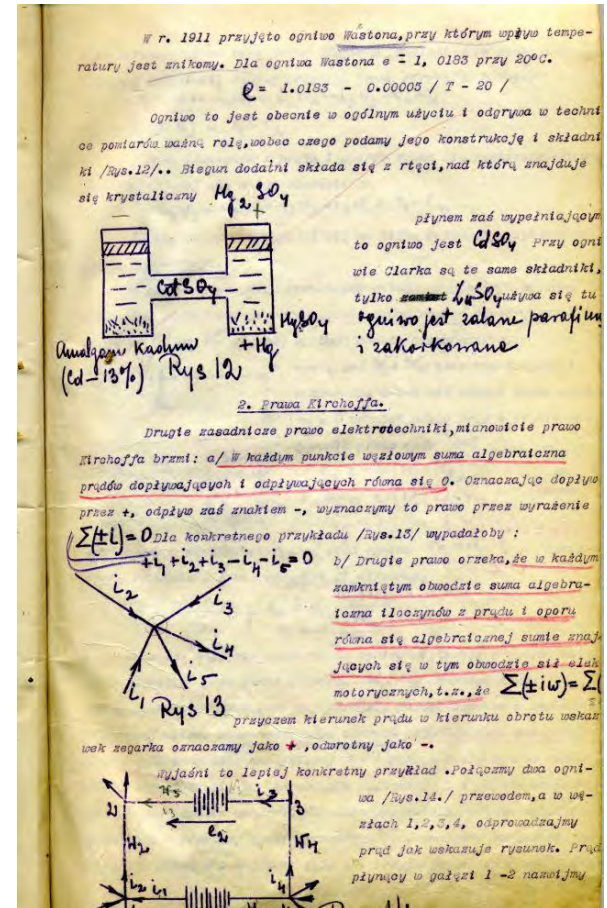 W r. 1911 przyjęto ogniwo Wastona,przy którym wpływ tempe-
ratury jest znikomy. Dla ogniwa Wastona e = 1, 0183 przy 20°C.
e = 1.0183 - 0.00005 / T - 20 /
Ogniwo to jest obecnie w ogólnym użyciu i odgrywa w techni
ce pomiarów ważną rolę,wobec czego podamy jego konstrukcję i składni
ki /Rys.12/.. Biegun dodatni składa się z rtęci,nad którą znajduje
się krystaliczny Hg2SO4
płynem zaś wypełniającym
to ogniwo jest CdSO4 Przy ogni
wie Clarka są te same składniki,
tylko ZnSO4 używa się tu
ogniwo jest zalane parafiną
i zakorkowane
- +
CdSO4
HgSO4
+Hg
Amalgam Kadmu
(Cd-13%)
Rys 12
2. Prawa Kirchoffa.
Drugie zasadnicze prawo elektrotechniki,mianowicie prawo
Kirchoffa brzmi: a/ W każdym punkcie węzłowym suma algebraiczna
prądów dopływających i odpływających równa się 0. Oznaczając dopływ
przez +, odpływ zaś znakiem -, wyznaczymy to prawo przez wyrażenie
Σ(±i)=0 Dla konkretnego przykładu /Rys.13/ wypadałoby :
+i1+i2+i3-i4-i5=0
b/ Drugie prawo orzeka,że w każdym
zamkniętym obwodzie suma algebra-
iczna iloczynów z prądu i oporu
równa się algebraicznej sumie znaj
jących się w tym obwodzie sił elek
motorycznych,t.z.,że Σ(±iw)=Σ(
i2
i3
i4
i5
i1
Rys 13
przyczem kierunek prądu w kierunku obrotu wskaz
wek zegarka oznaczamy jako + ,odwrotny jako -.
Wyjaśni to lepiej konkretny przykład .Połączmy dwa ogni-
wa /Rys.14./ przewodem,a w wę-
złach 1,2,3,4, odprowadzajmy
prąd jak wskazuje rysunek. Prąd
płynący w gałęzi 1 -2 nazwijmy
2
i3
3
e2
W2
W4
i2
i1
i4